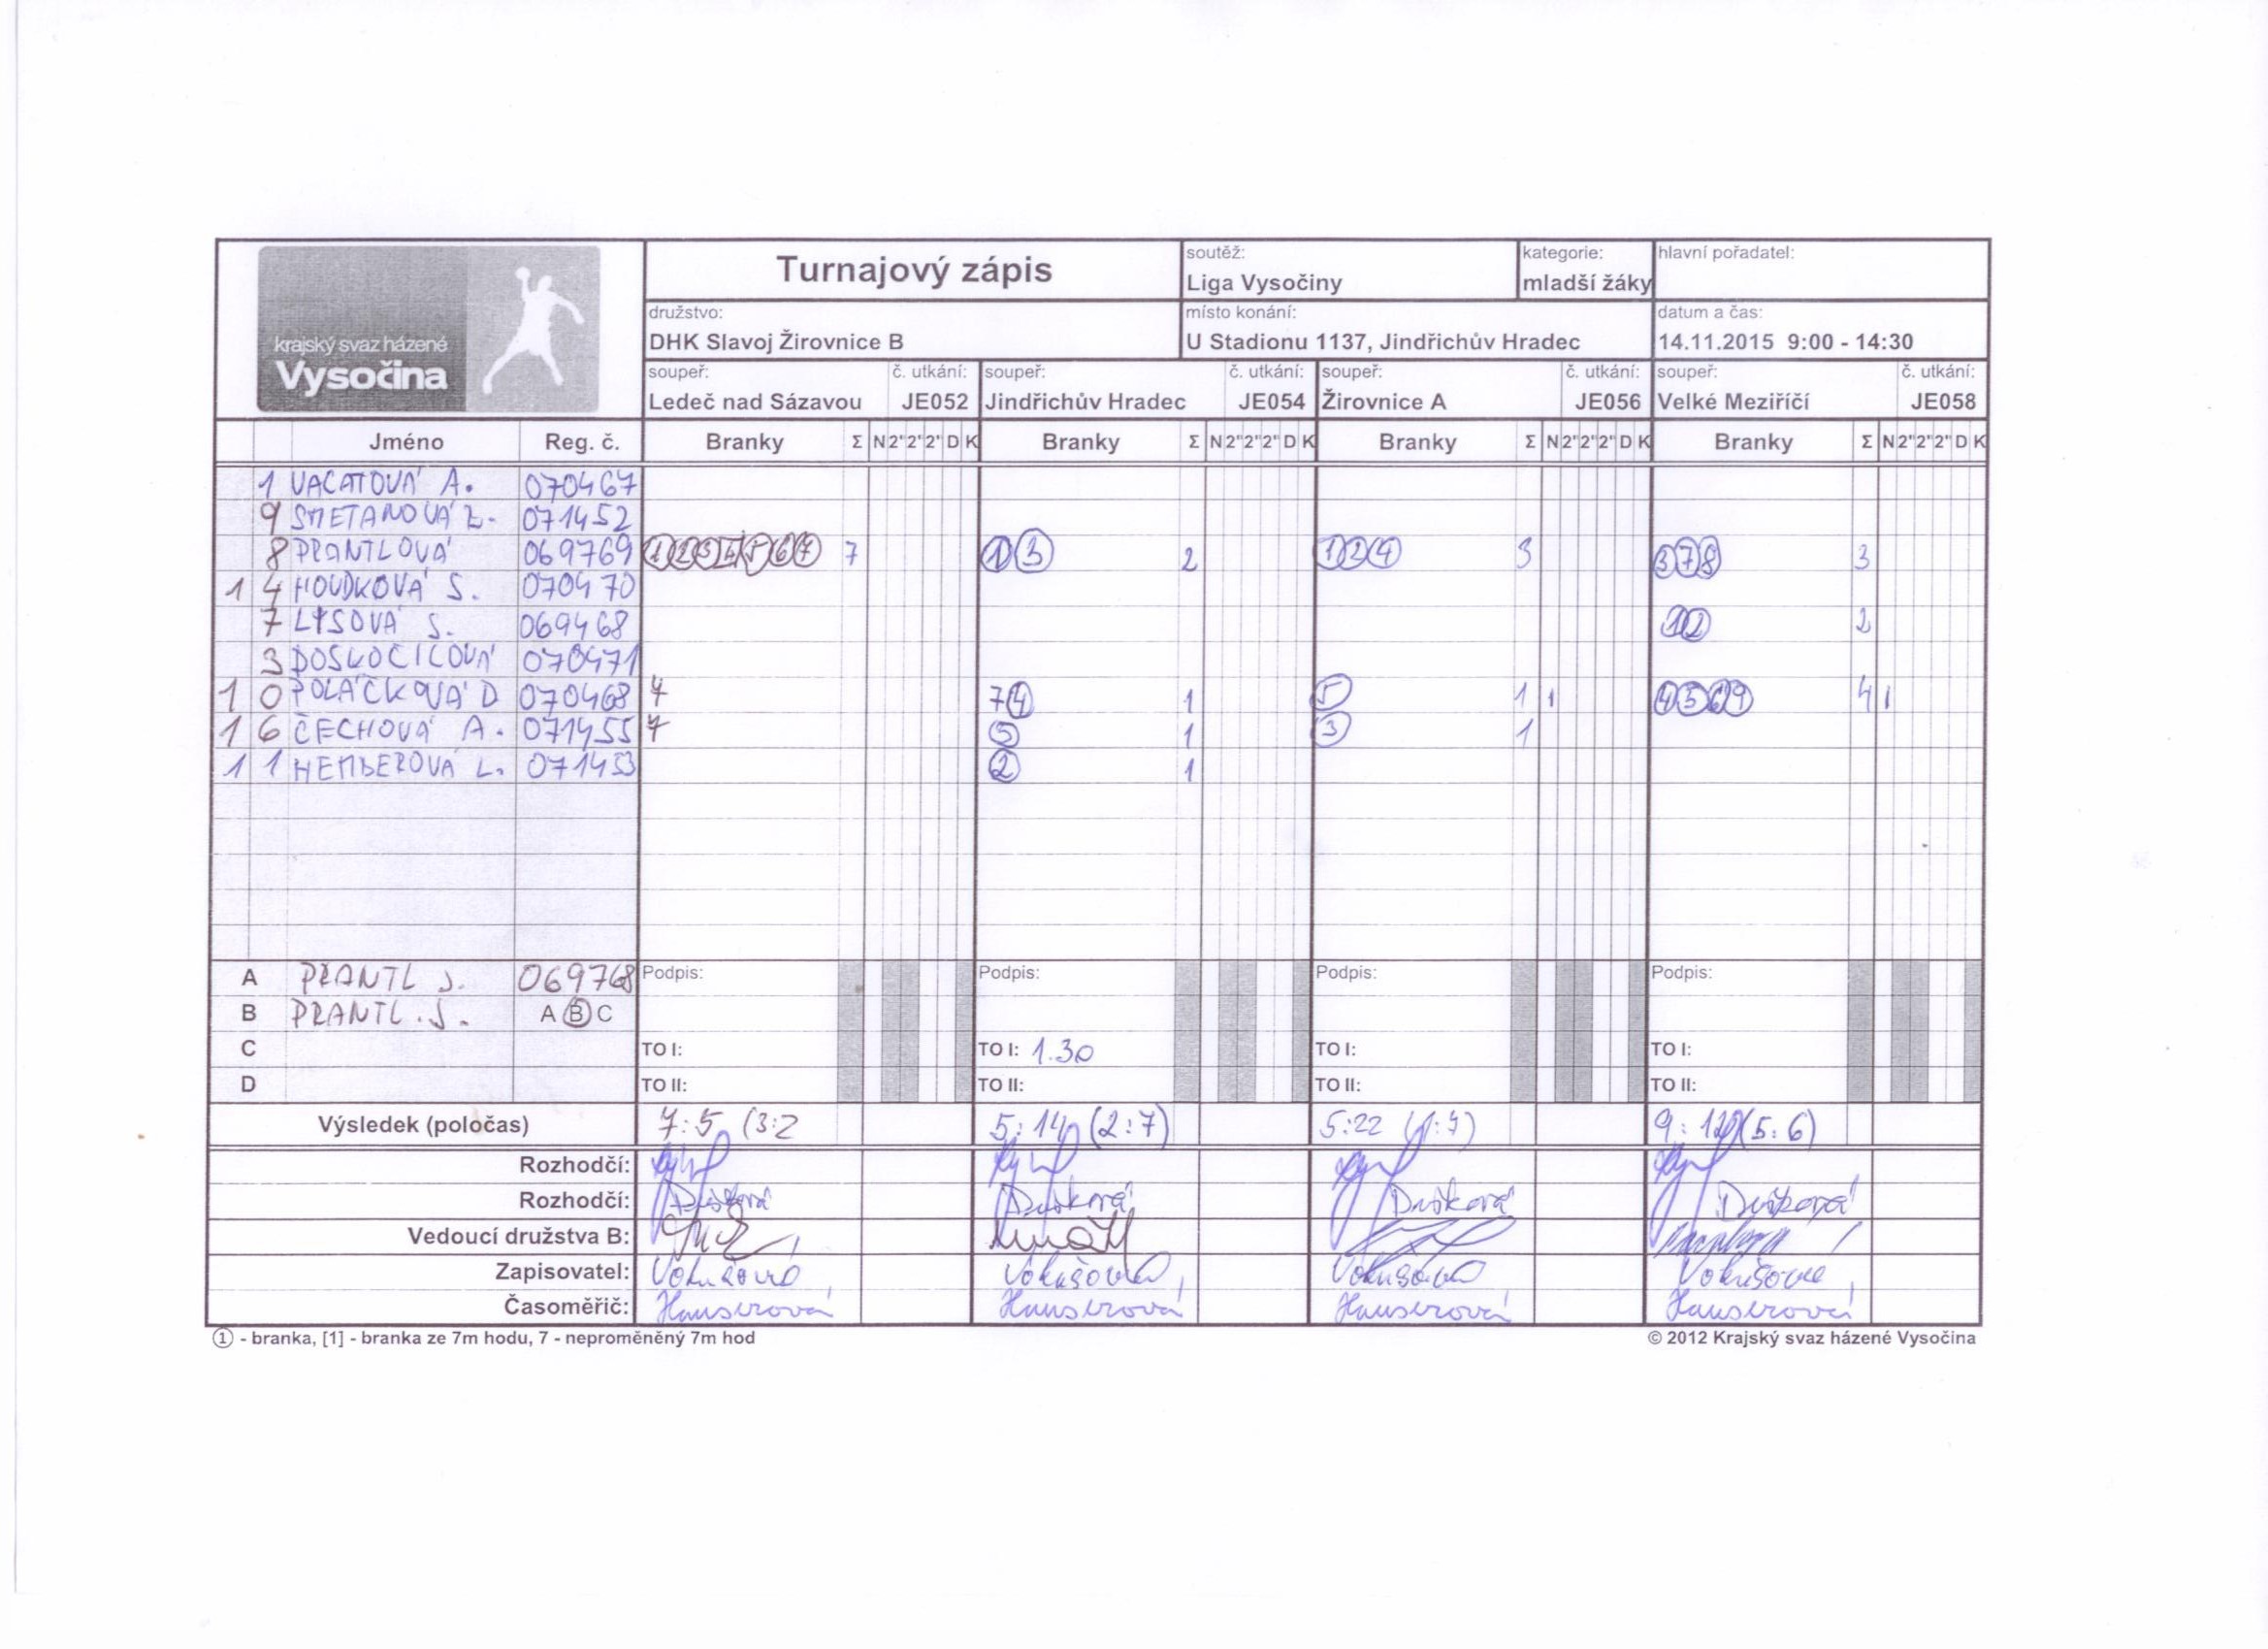 krajský svaz házené
Vysočina
Turnajový zápis
soutěž:
Liga Vysočiny
kategorie:
mladší žáky
hlavní pořadatel:
družstvo:
DHK Slavoj Žirovnice B
místo konání:
U Stadionu 1137, Jindřichův Hradec
datum a čas:
14.11.2015 9:00 - 14:30
soupeř: č. utkání: soupeř: č. utkání: soupeř: č. utkání: soupeř: č. utkání:
Ledeč nad Sázavou JE052 Jindřichův Hradec JE054 Žirovnice A JE056 Velké Meziříčí JE058
Jméno Reg. č. Branky Σ N 2" 2" 2" D K Branky Σ N 2" 2" 2" D K Branky Σ N 2" 2" 2" D K Branky Σ N 2" 2" 2" D K
1 VACATOVÁ A. 070467
9 SMETANOVÁ Z. 071452
8 PRANTLOVÁ 069769 1 2 3 4 5 6 7 7 1 3 2 1 2 4 3 3 7 8 3
1 4 HOUDKOVÁ S. 070470
7 LYSOVÁ S. 069468 1 2 2
3 DOSKOČILOVÁ 070471
1 0 POLÁČKOVÁ D 070468 7 7 4 1 5 1 1 4 5 6 9 4 1
1 6 ČECHOVÁ A. 071455 7 5 1 3 1
1 1 HEMBEROVÁ L. 071453 2 1
A PRANTL J. 069768 Podpis: Podpis: Podpis: Podpis:
B PRANTL. J. A B C
C TO I: TO I: 1.30 TO I: TO I:
D TO II: TO II: TO II: TO II:
Výsledek (poločas) 7:5 (3:2 5:14 (2:7) 5:22 9: (5:6)
Rozhodčí:
Rozhodčí: Dušková Dušková Dušková Dušková
Vedoucí družstva B:
Zapisovatel: Vokušová Vokušová Vokušová Vokušová
Časoměřič: Hauserová Hauserová Hauserová Hauserová
① - branka, [1] - branka ze 7m hodu, 7 - neproměněný 7m hod
© 2012 Krajský svaz házené Vysočina